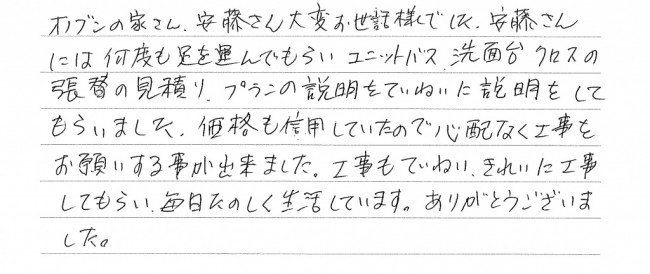 オノブンの家さん、安藤さん大変お世話様でした、安藤さん
には何度も足を運んでもらいユニットバス、洗面台クロスの
張替の見積り、プランの説明をていねいに説明をして
もらいました、価格も信用していたので心配なく工事を
お願いする事が出来ました。工事もていねい、きれいに工事
してもらい、毎日たのしく生活しています。ありがとうございま
した。